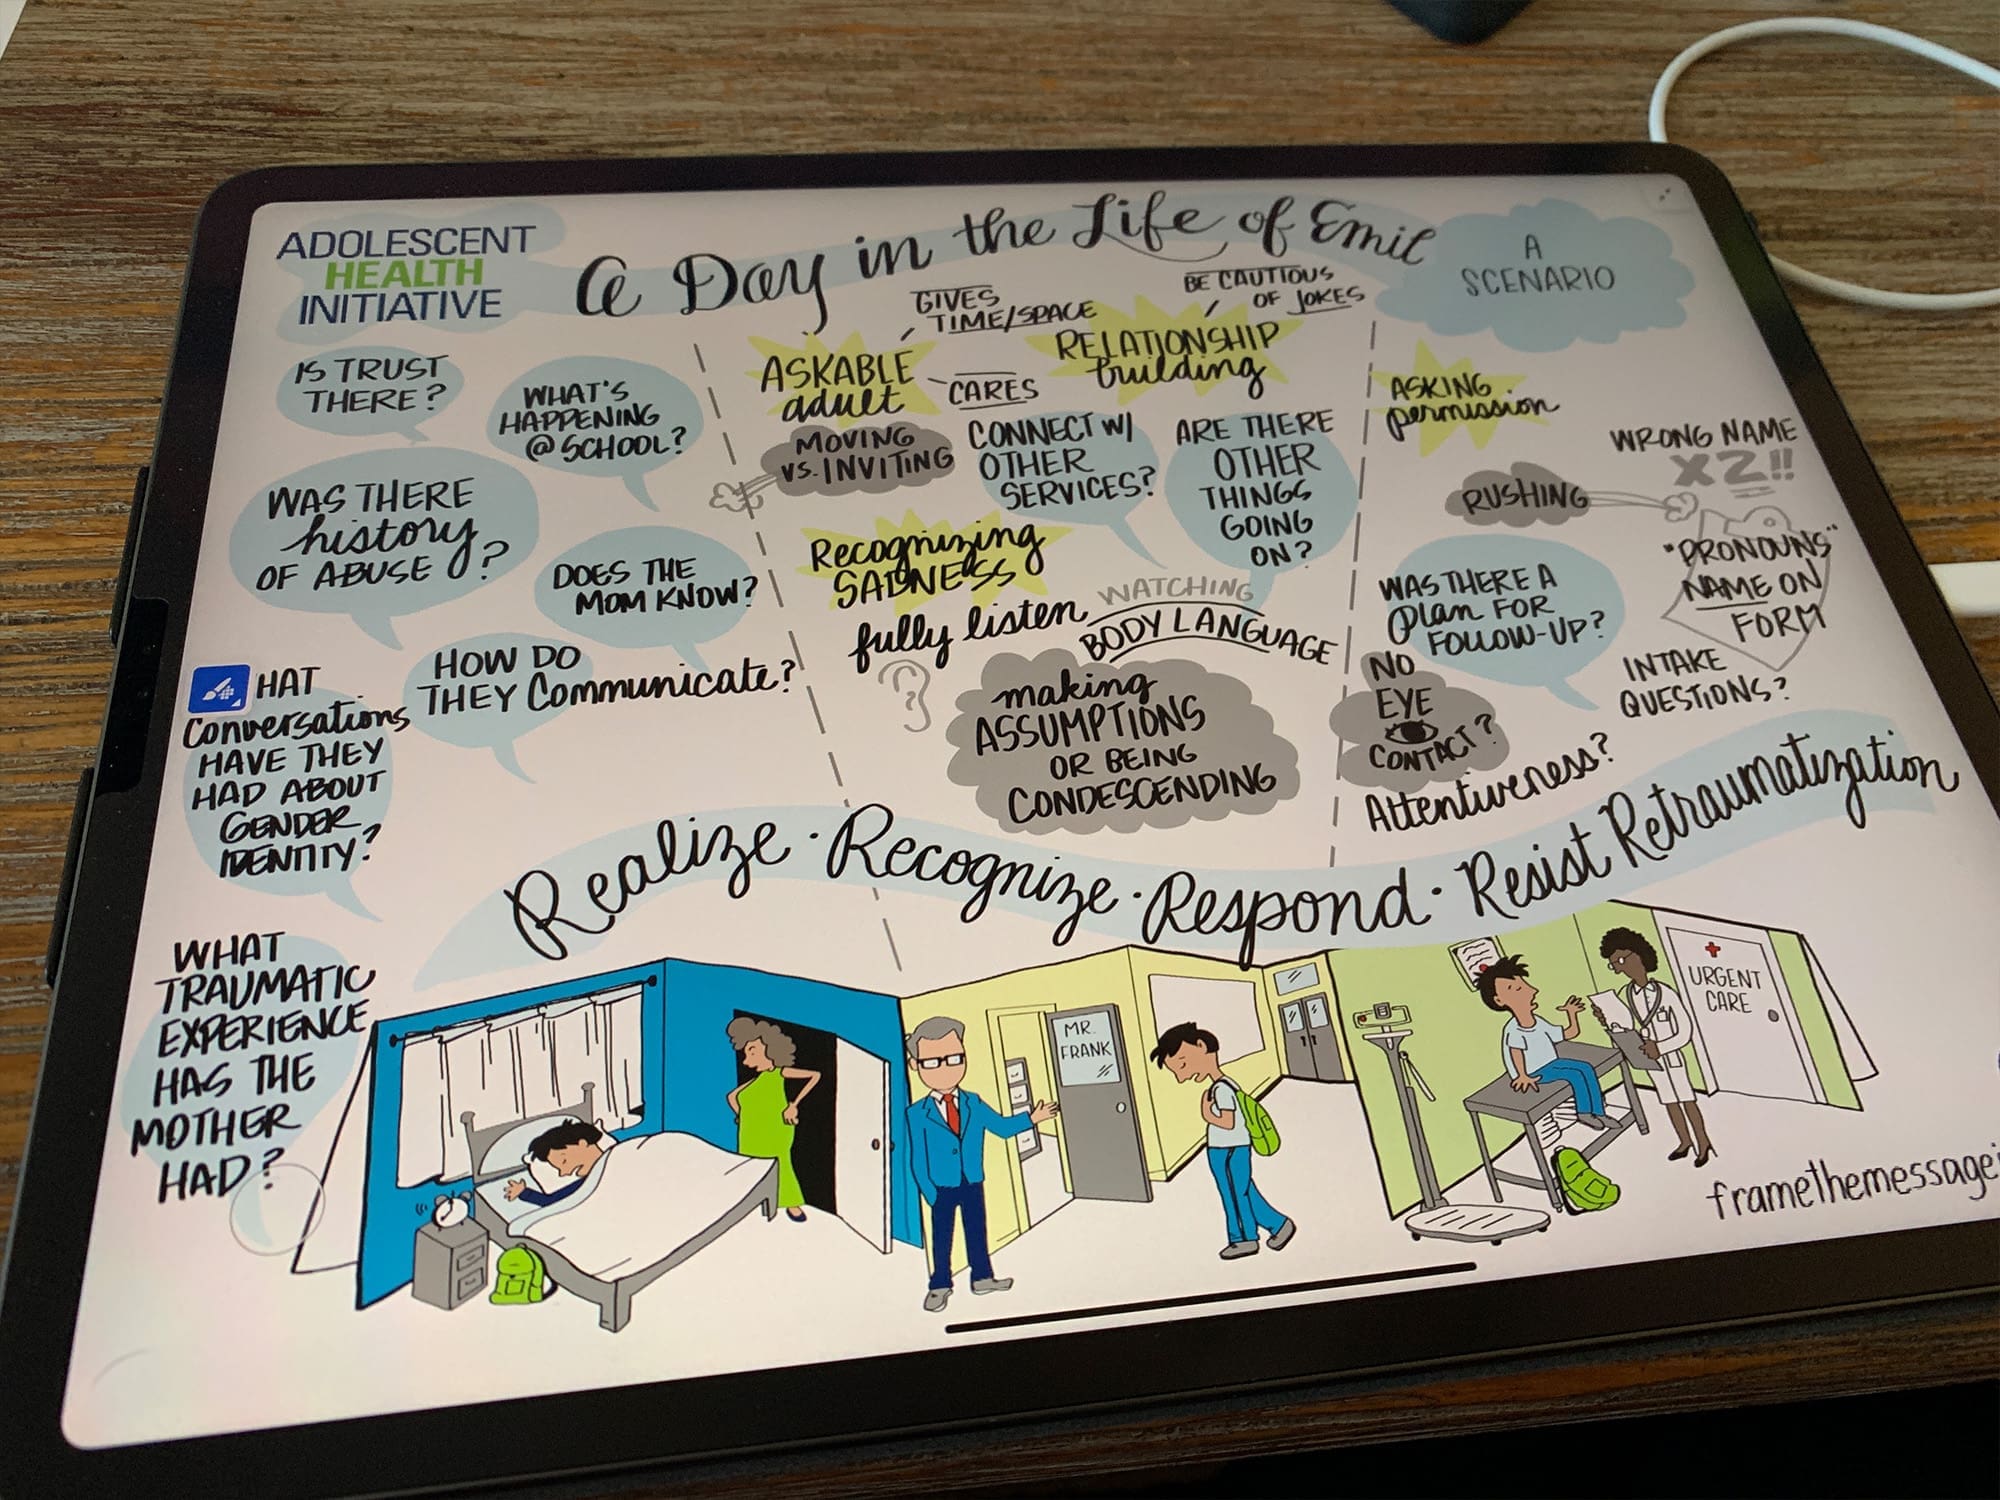 ADOLESCENT
HEALTH
INITIATIVE
A Day in the Life of Emil
A
SCENARIO
IS TRUST
THERE?
WHAT'S
HAPPENING
@ SCHOOL?
WAS THERE
history
OF ABUSE?
DOES THE
MOM KNOW?
HOW DO
THEY Communicate?
HAT
Conversations
HAVE THEY
HAD ABOUT
GENDER
IDENTITY?
WHAT
TRAUMATIC
EXPERIENCE
HAS THE
MOTHER
HAD?
GIVES
TIME/SPACE
BE CAUTIOUS
OF JOKES
ASKABLE
adult
CARES
RELATIONSHIP
building
MOVING
VS. INVITING
CONNECT W/
OTHER
SERVICES?
ARE THERE
OTHER
THINGS
GOING
ON?
Recognizing
SADNESS
fully listen
WATCHING
BODY LANGUAGE
making
ASSUMPTIONS
OR BEING
CONDESCENDING
ASKING
permission
WRONG NAME
X2!!
RUSHING
"PRONOUNS"
NAME ON
FORM
WAS THERE A
plan FOR
FOLLOW-UP?
INTAKE
QUESTIONS?
NO
EYE
CONTACT?
Attentiveness?
Realize · Recognize · Respond · Resist Retraumatization
MR.
FRANK
URGENT
CARE
framethemessagei